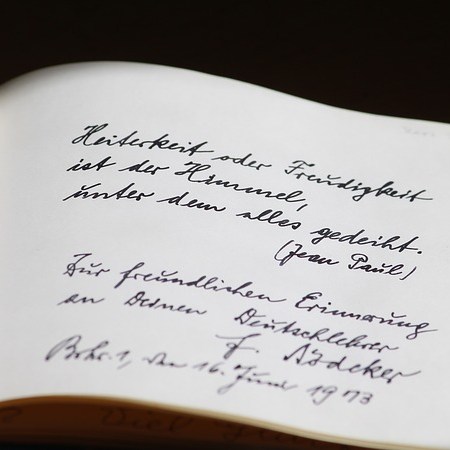 Heiterkeit oder Freudigkeit
ist der Himmel,
unter dem alles gedeiht.
(Jean Paul.)
Zur freundlichen Erinnerung
an Deinen Deutschlehrer
F. Bödeker
1, den 16. Juni 1973